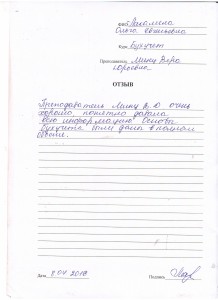 ФИО Рекамина
Ольга Евгеньевна
Курс Бухучет
Преподаватель Минц Вера
Юрьевна
ОТЗЫВ
Преподаватель Минц В.Ю очень
хорошо, понятно давала
всю информацию Основы
бухучета были даны в полном
объеме.
Дата 8.04.2018
Подпись